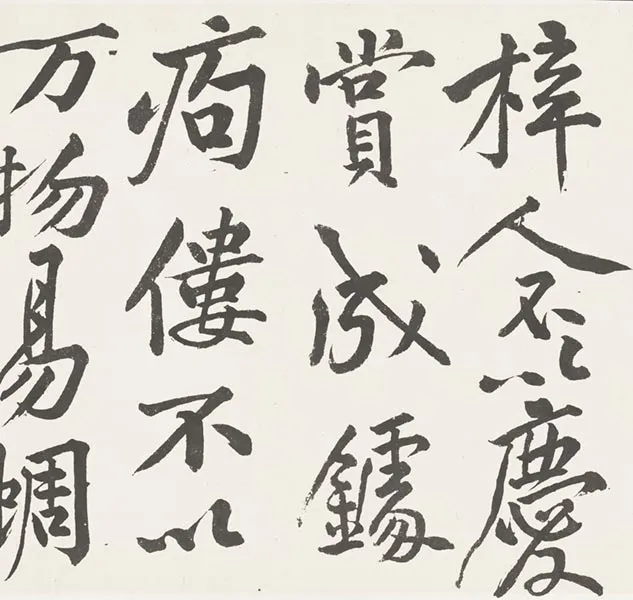 梓人不以慶
賞成鐻
痀僂不以
万物易蜩